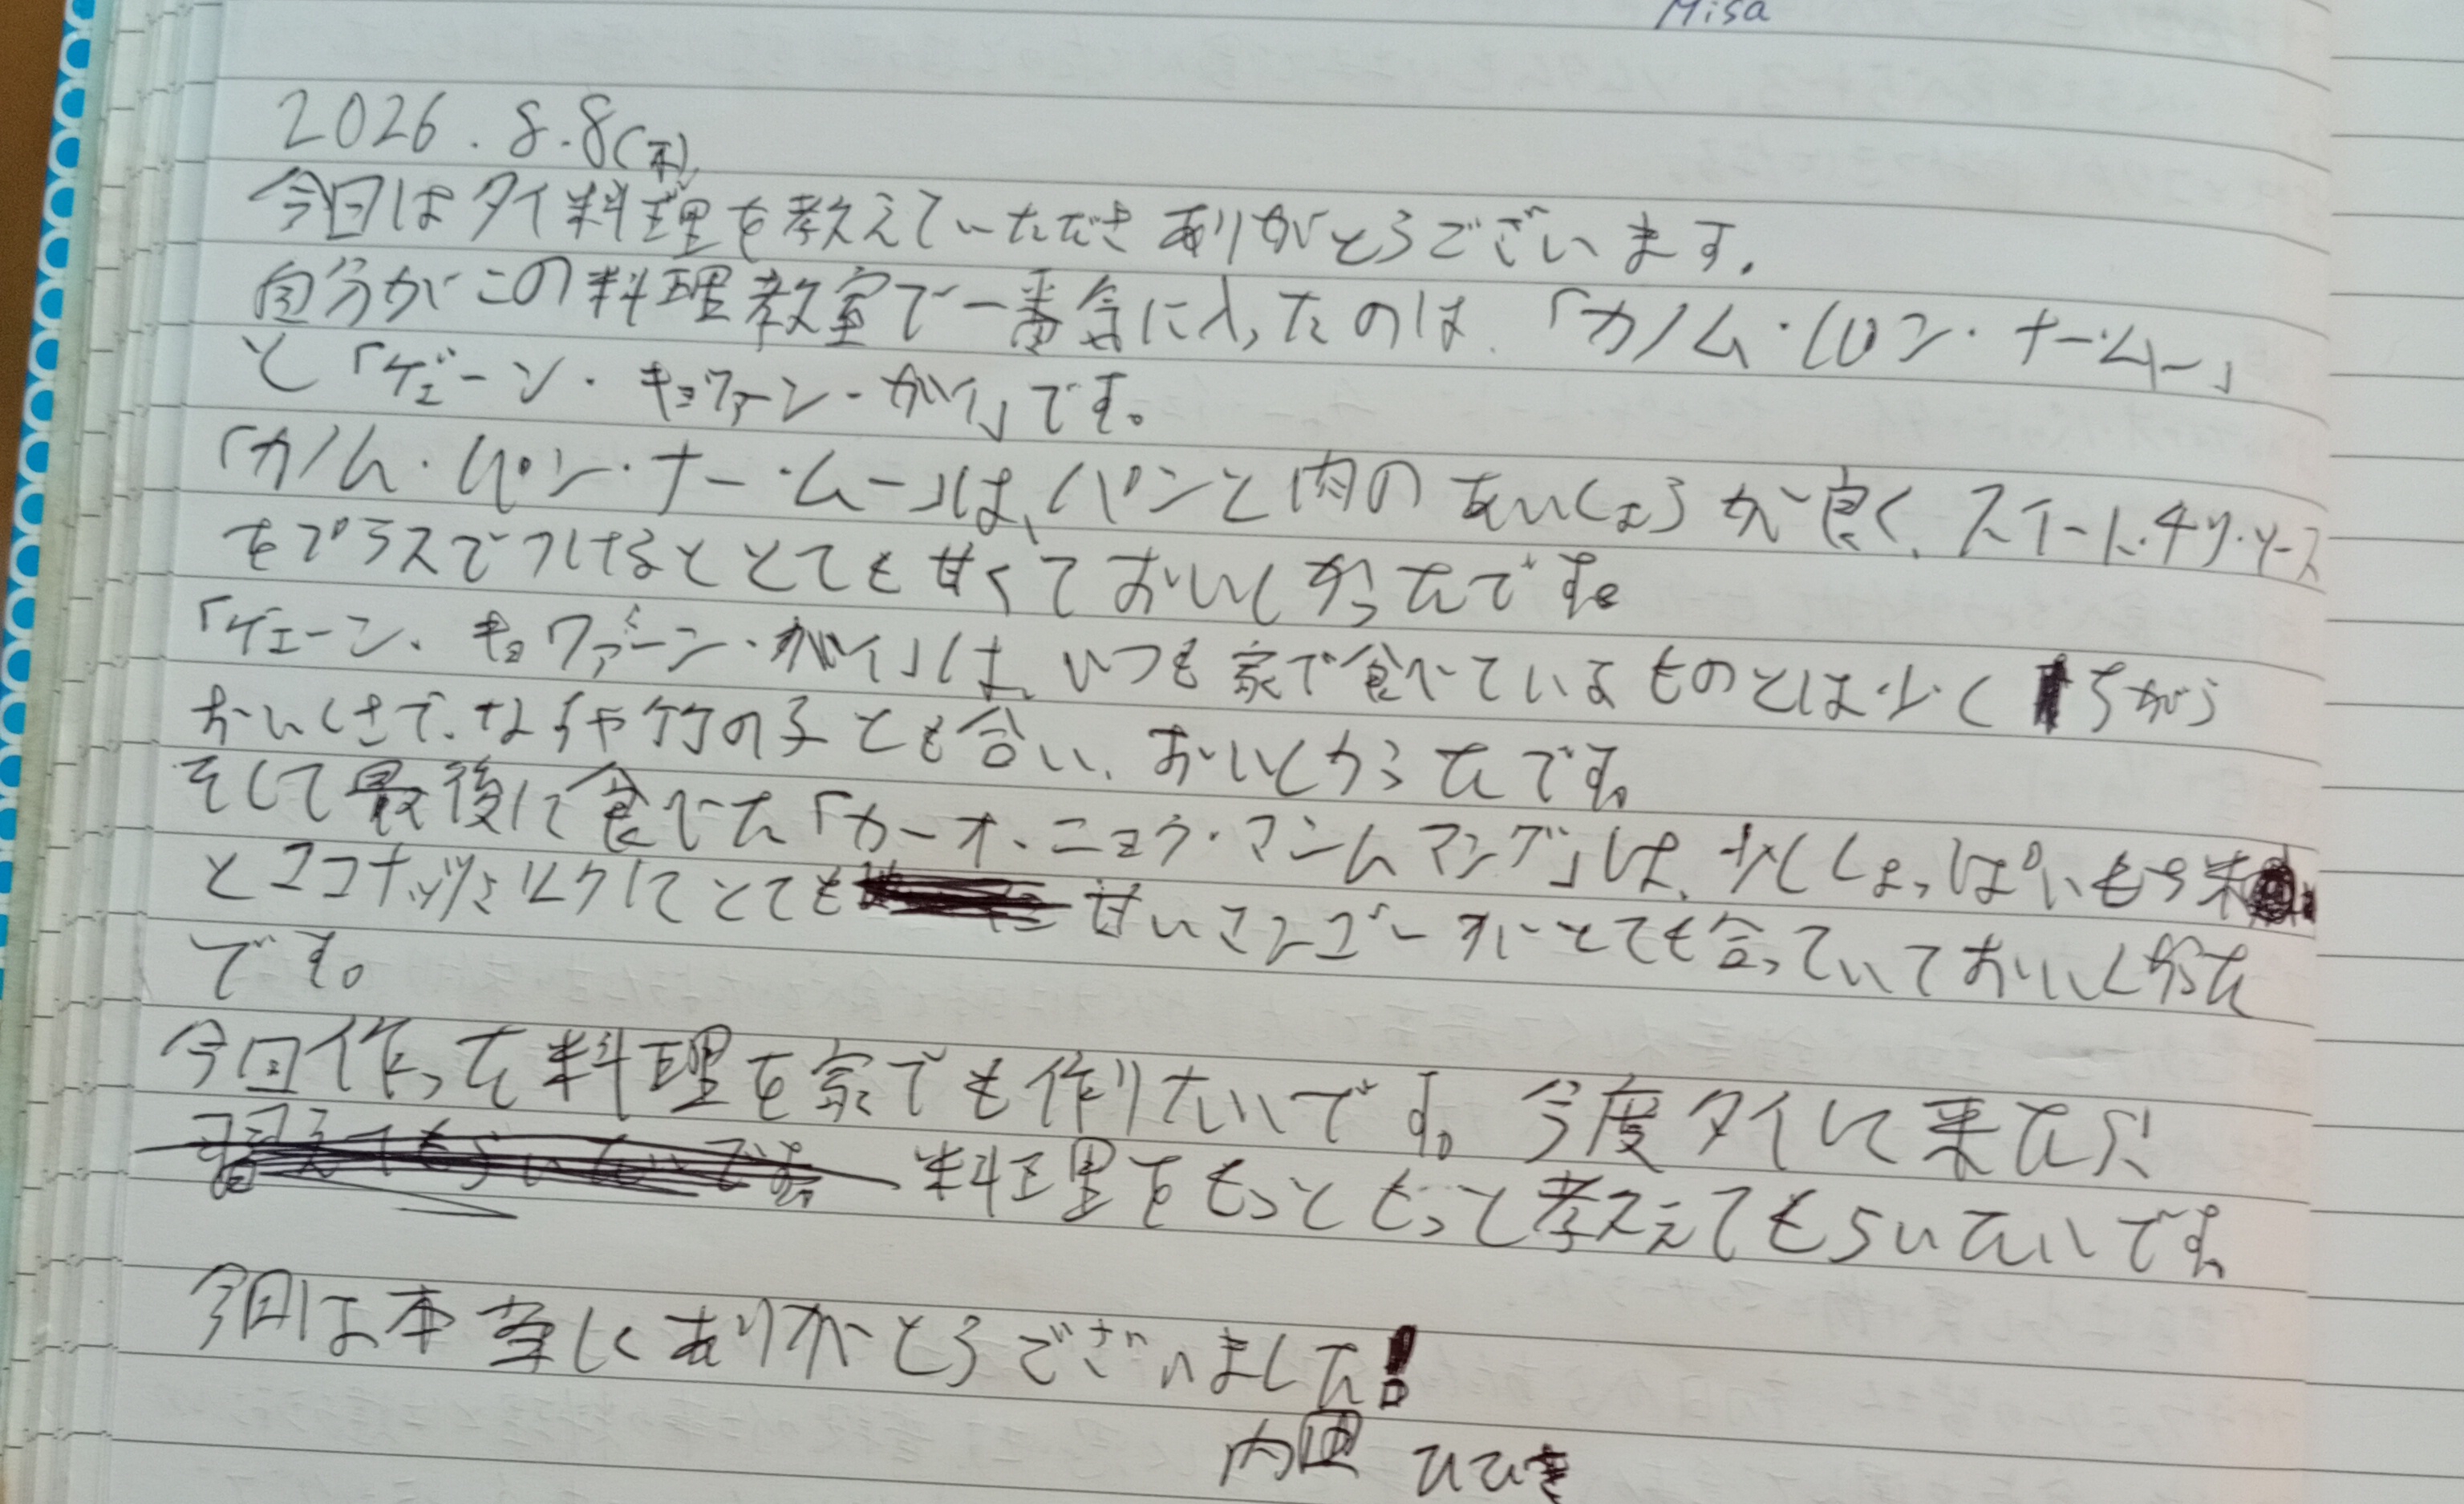 Misa
2026.8.8(木)
今日はタイ料理を教えていただきありがとうございます。
自分がこの料理教室で一番気に入ったのは、「カノム・パン・ナー・ムー」
と「ゲェーン・キョワァーン・ガイ」です。
「カノム・パン・ナー・ムー」は、パンと肉のあいしょうが良く、スイート・チリ・ソース
をプラスでつけるととても甘くておいしかったです。
「ゲェーン・キョワァーン・ガイ」は、いつも家で食べているものとは少しちがう
おいしさで、なすや竹の子とも合い、おいしかったです。
そして最後に食べた「カーオ・ニョウ・マンムアング」は、少ししょっぱいもち米
とココナッツミルクにとても甘いマンゴーがとても合っていておいしかった
です。
今回作った料理を家でも作りたいです。今度タイに来たら
料理をもっともっと教えてもらいたいです。
今回は本当にありがとうございました!
内 ひびき